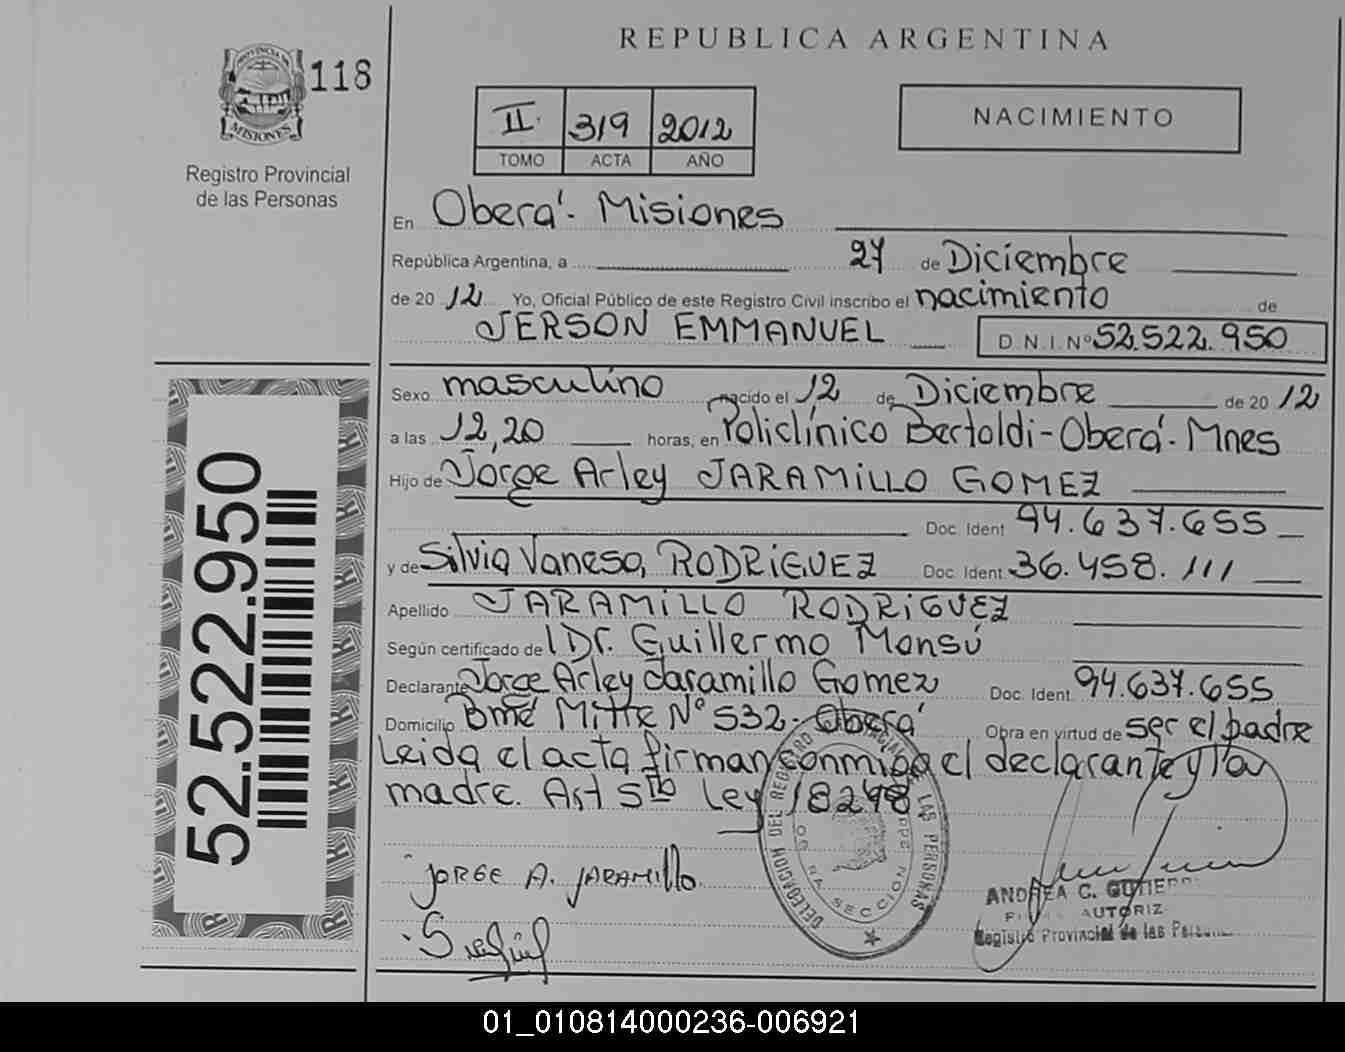 REPUBLICA ARGENTINA
PROVINCIA DE
MISIONES
118
Registro Provincial
de las Personas
II 319 2012
TOMO ACTA AÑO
NACIMIENTO
En Oberá - Misiones
República Argentina, a 27 de Diciembre
de 2012 Yo, Oficial Público de este Registro Civil inscribo el nacimiento de
JERSON EMMANUEL D.N.I. Nº 52.522.950
Sexo masculino nacido el 12 de Diciembre de 2012
a las 12,20 horas, en Policlínico Bertoldi - Oberá - Mnes
Hijo de Jorge Arley JARAMILLO GOMEZ
Doc. Ident. 94.637.655
y de Silvia Vanesa, RODRIGUEZ Doc. Ident. 36.458.111
Apellido JARAMILLO RODRIGUEZ
Según certificado de l Dr. Guillermo Monsú
Declarante Jorge Arley Jaramillo Gomez Doc. Ident. 94.637.655
Domicilio Bmé Mitre Nº 532 - Oberá Obra en virtud de ser el padre
Leida el acta firman conmigo el declarante y la
madre. Art 5to Ley 18248
52.522.950
JORGE A. JARAMILLO
DELEGACION DEL REGISTRO PROVINCIAL DE LAS PERSONAS
SECCION
ANDREA C. GUTIERR
AUTORIZ
Registro Provincial de las Person
01_010814000236-006921